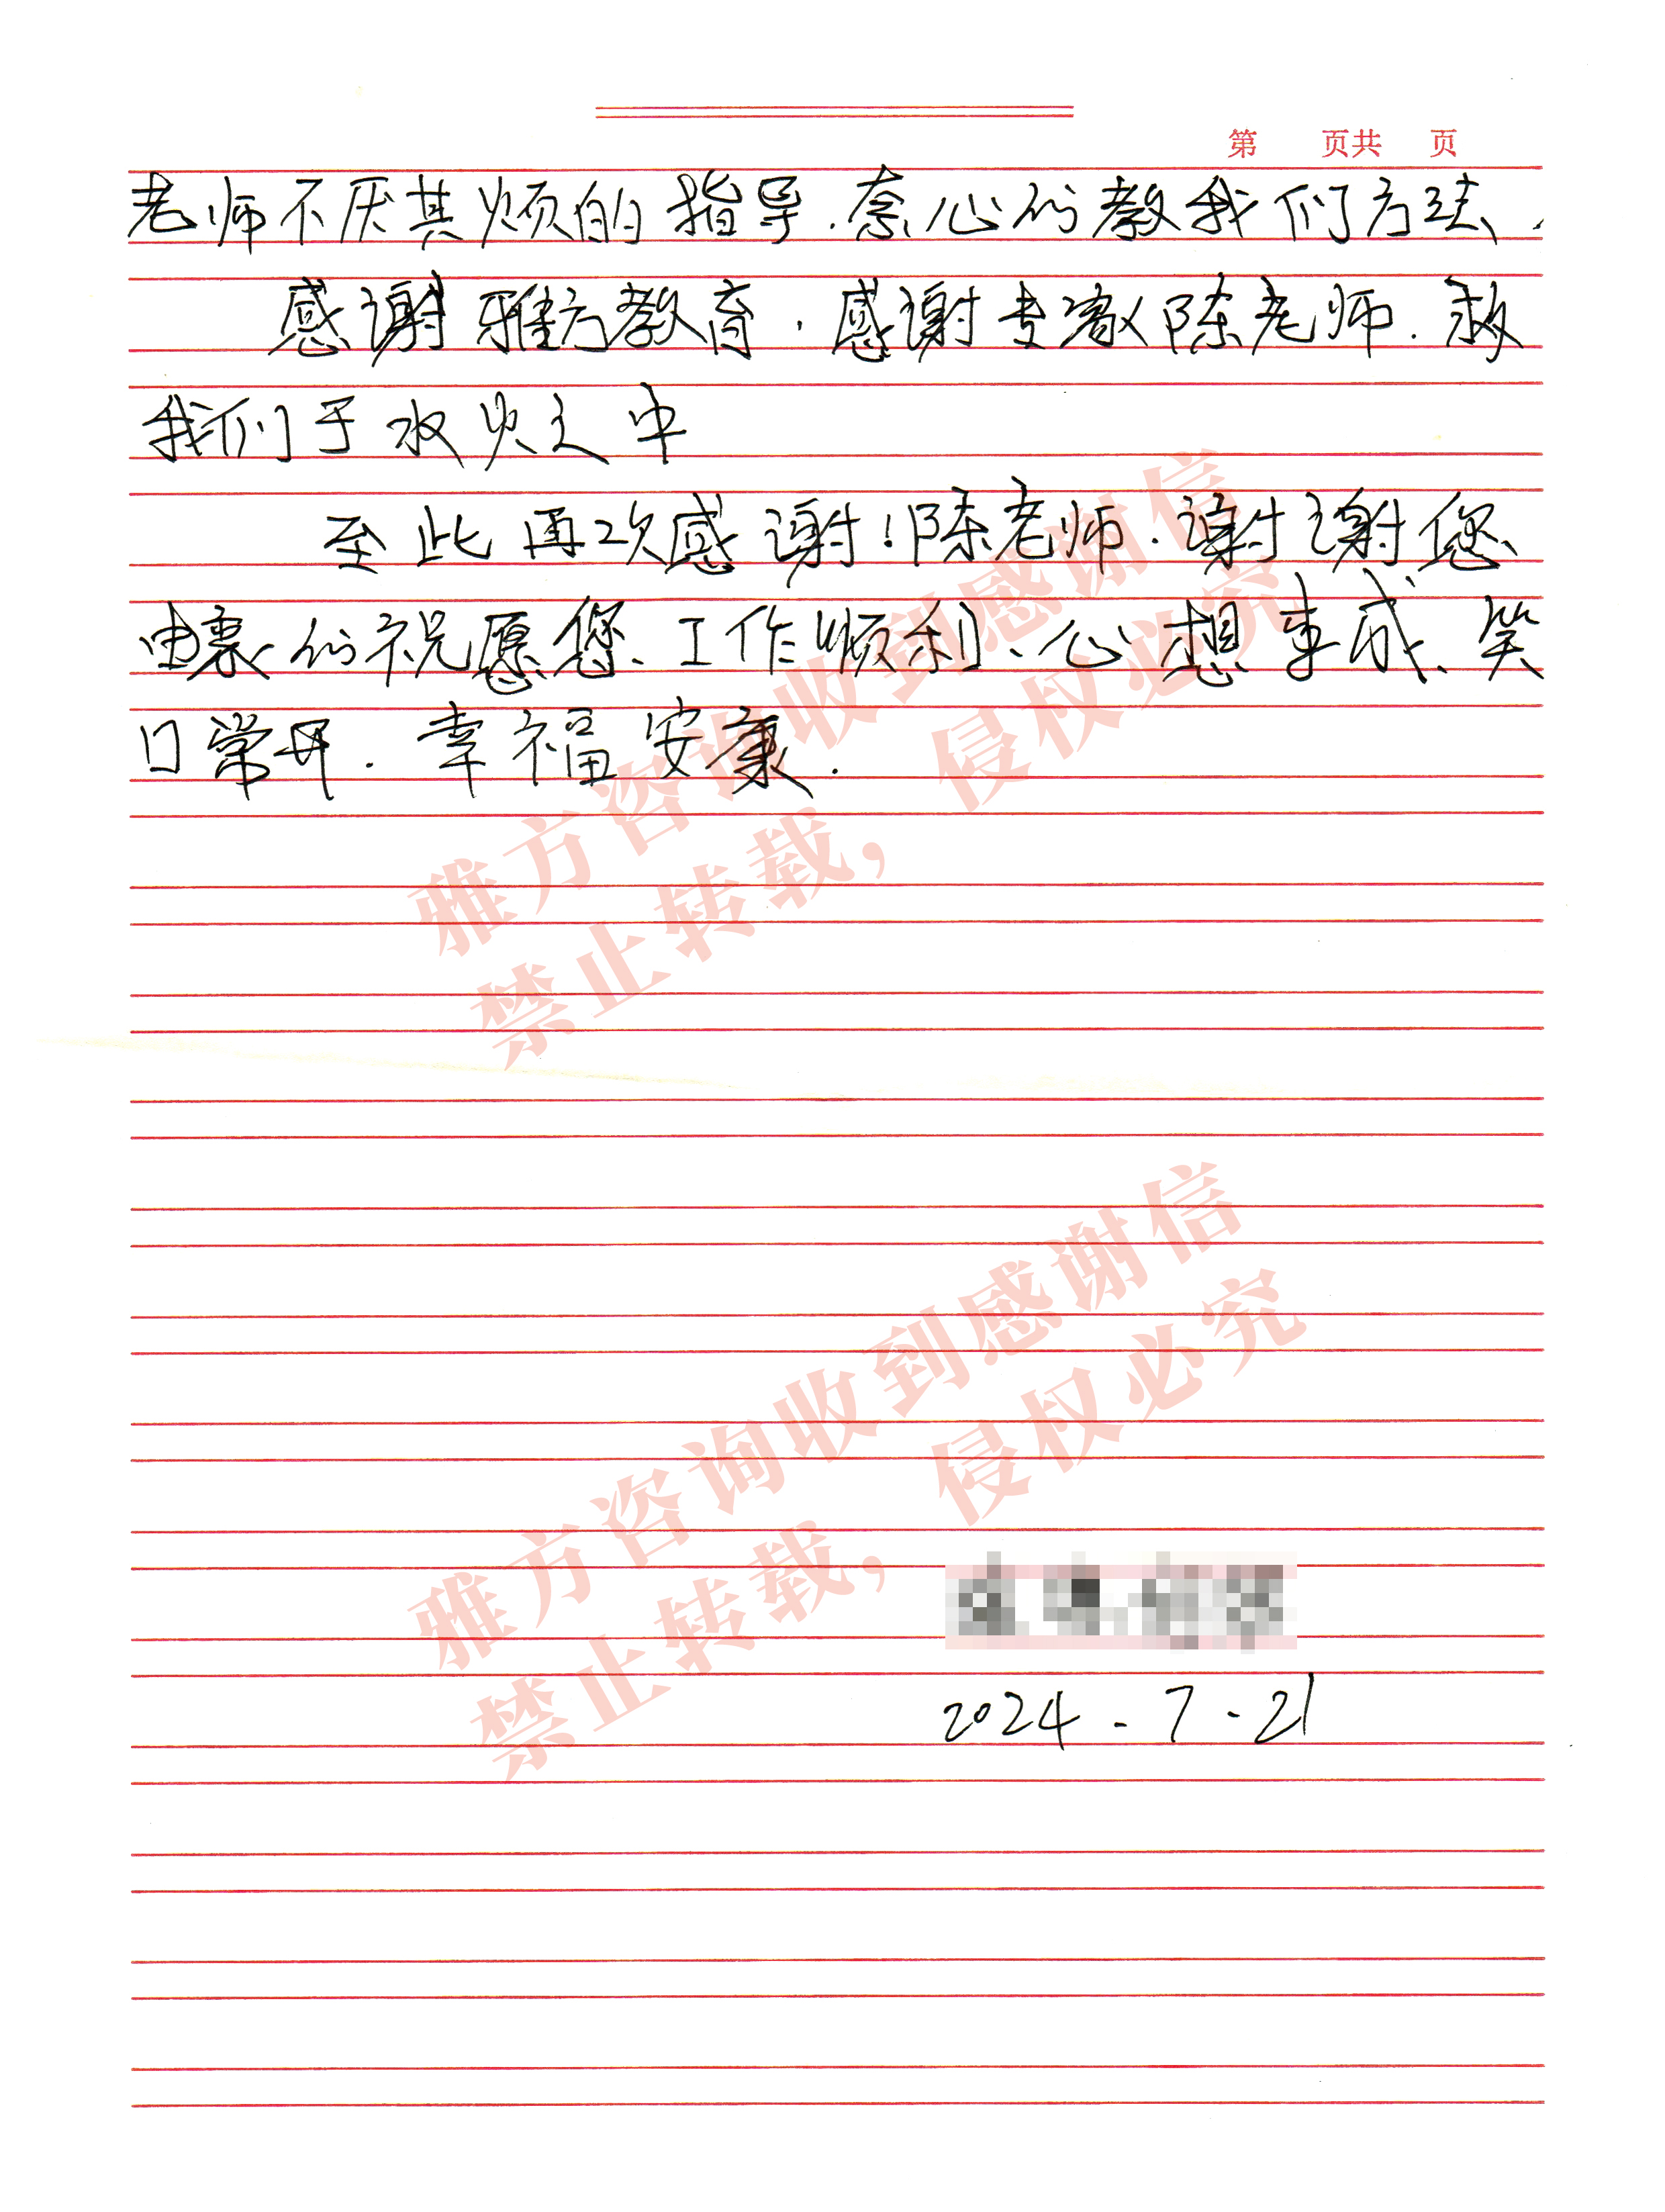 第 页共 页
老师不厌其烦的指导.奈心的教我们方法.
感谢雅方教育.感谢专家陈老师.救
我们于水火之中
至此再次感谢!陈老师.谢谢您
由衷的祝愿您、工作顺利、心想事成、笑
口常开.幸福安康.
雅方咨询收到感谢信
禁止转载，侵权必究
雅方咨询收到感谢信
禁止转载，侵权必究
2024.7.21